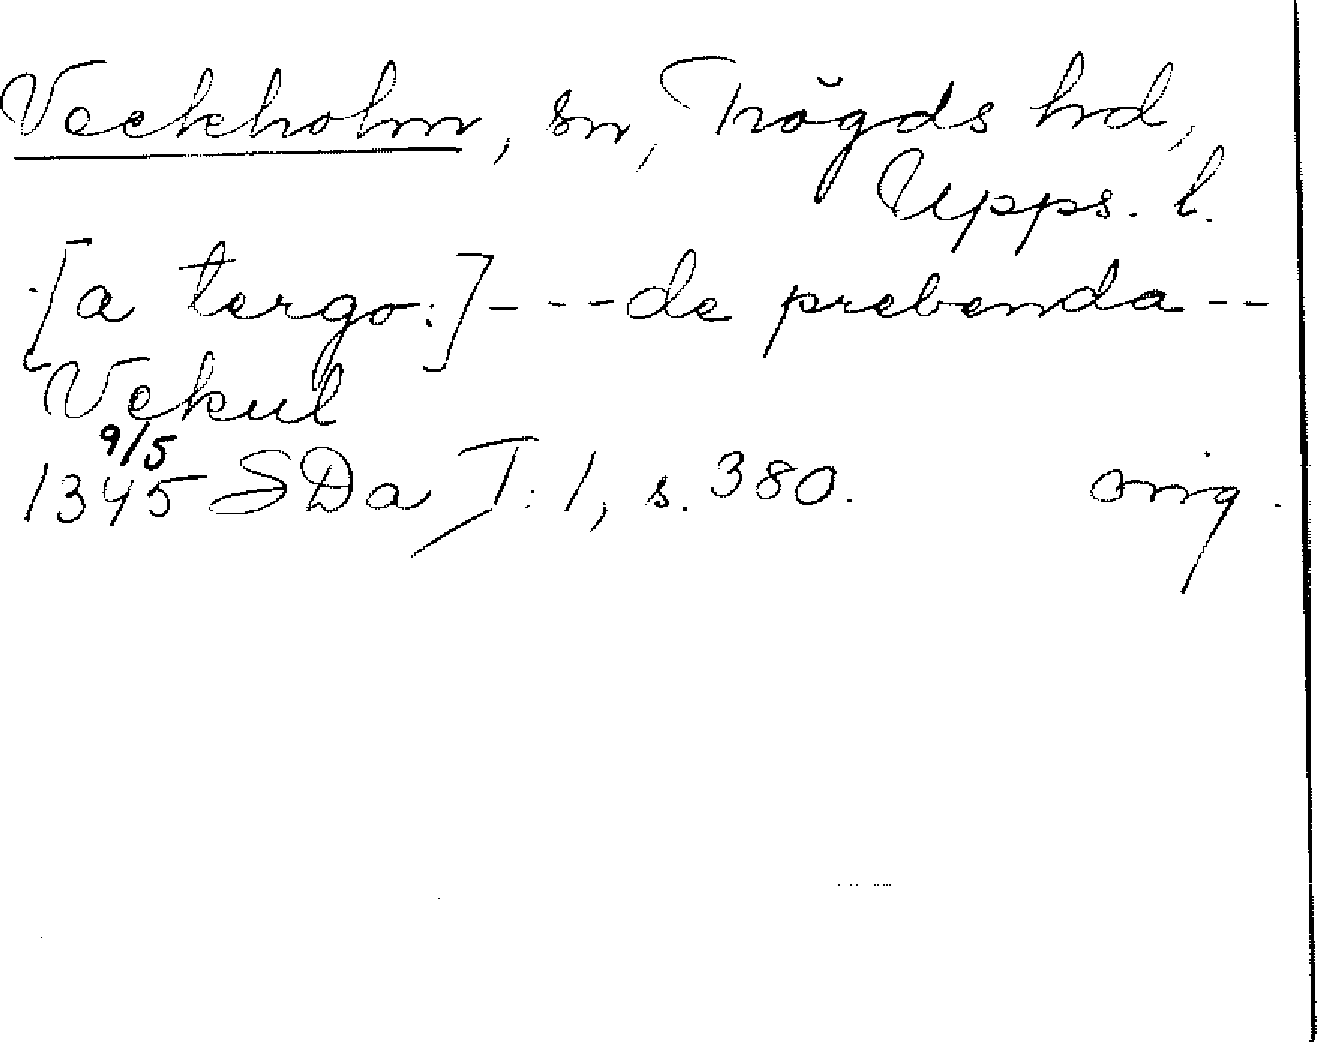 Veckholm, sn, Trögds hd,
Upps. l.
[a tergo:] --- de prebenda --
Vekul
9/5
1345 SDa I: 1, s. 380. orig.